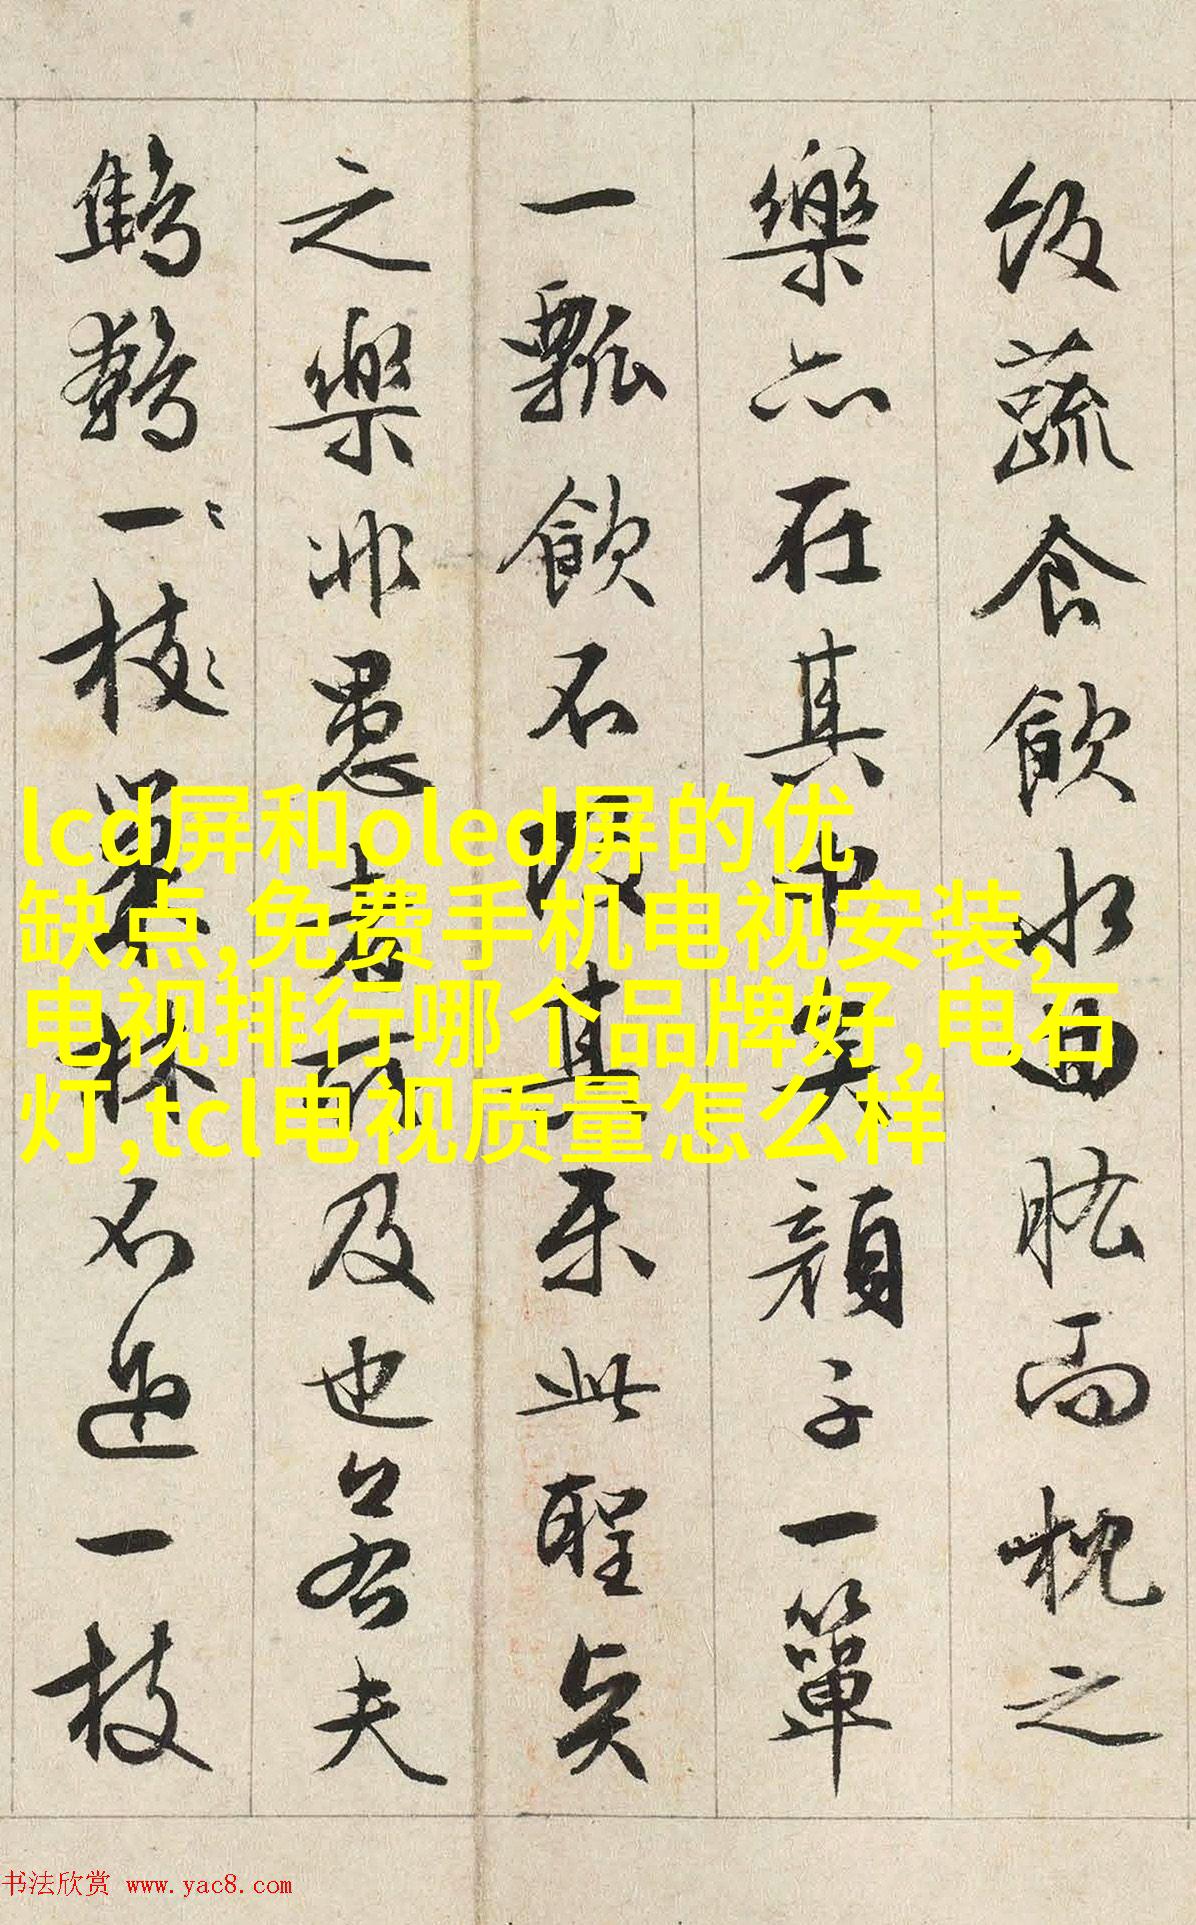 飯蔬食飲水曲肱而枕之
樂亦在其中矣顏子一簞
一瓢飲不改其樂此聖賢
之樂非愚者所及也若夫
鷦鷯一枝巢林不過一枝
lcd屏和oled屏的优
缺点,免费手机电视安装,
电视排行哪个品牌好,电石
灯,tcl电视质量怎么样
书法欣赏 www.yac8.com